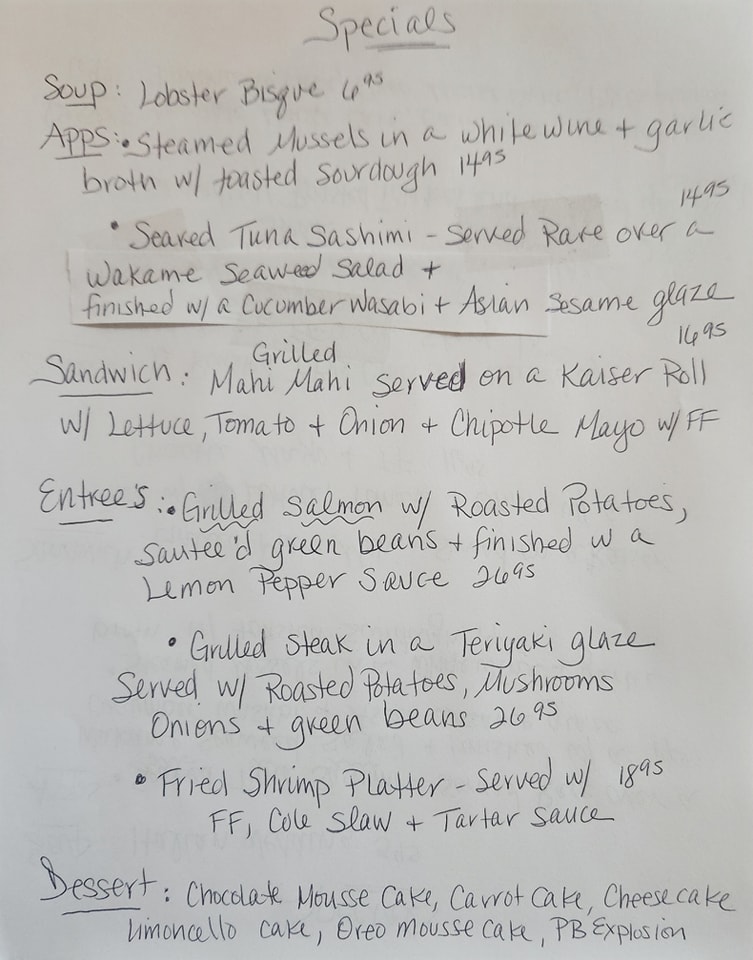 Specials
Soup: Lobster Bisque 6 95
Apps: • Steamed Mussels in a white wine + garlic
broth w/ toasted sourdough 14 95
14 95
• Seared Tuna Sashimi - Served Rare over a
Wakame Seaweed Salad +
finished w/ a Cucumber Wasabi + Asian Sesame glaze
16 95
Grilled
Sandwich: Mahi Mahi served on a Kaiser Roll
w/ Lettuce, Tomato + Onion + Chipotle Mayo w/ FF
Entree's: • Grilled Salmon w/ Roasted Potatoes,
Sautee'd green beans + finished w a
Lemon Pepper Sauce 26 95
• Grilled Steak in a Teriyaki glaze
Served w/ Roasted Potatoes, Mushrooms
Onions + green beans 26 95
• Fried Shrimp Platter - Served w/ 18 95
FF, Cole Slaw + Tartar Sauce
Dessert: Chocolate Mousse Cake, Carrot Cake, Cheesecake
Limoncello cake, Oreo mousse cake, PB Explosion